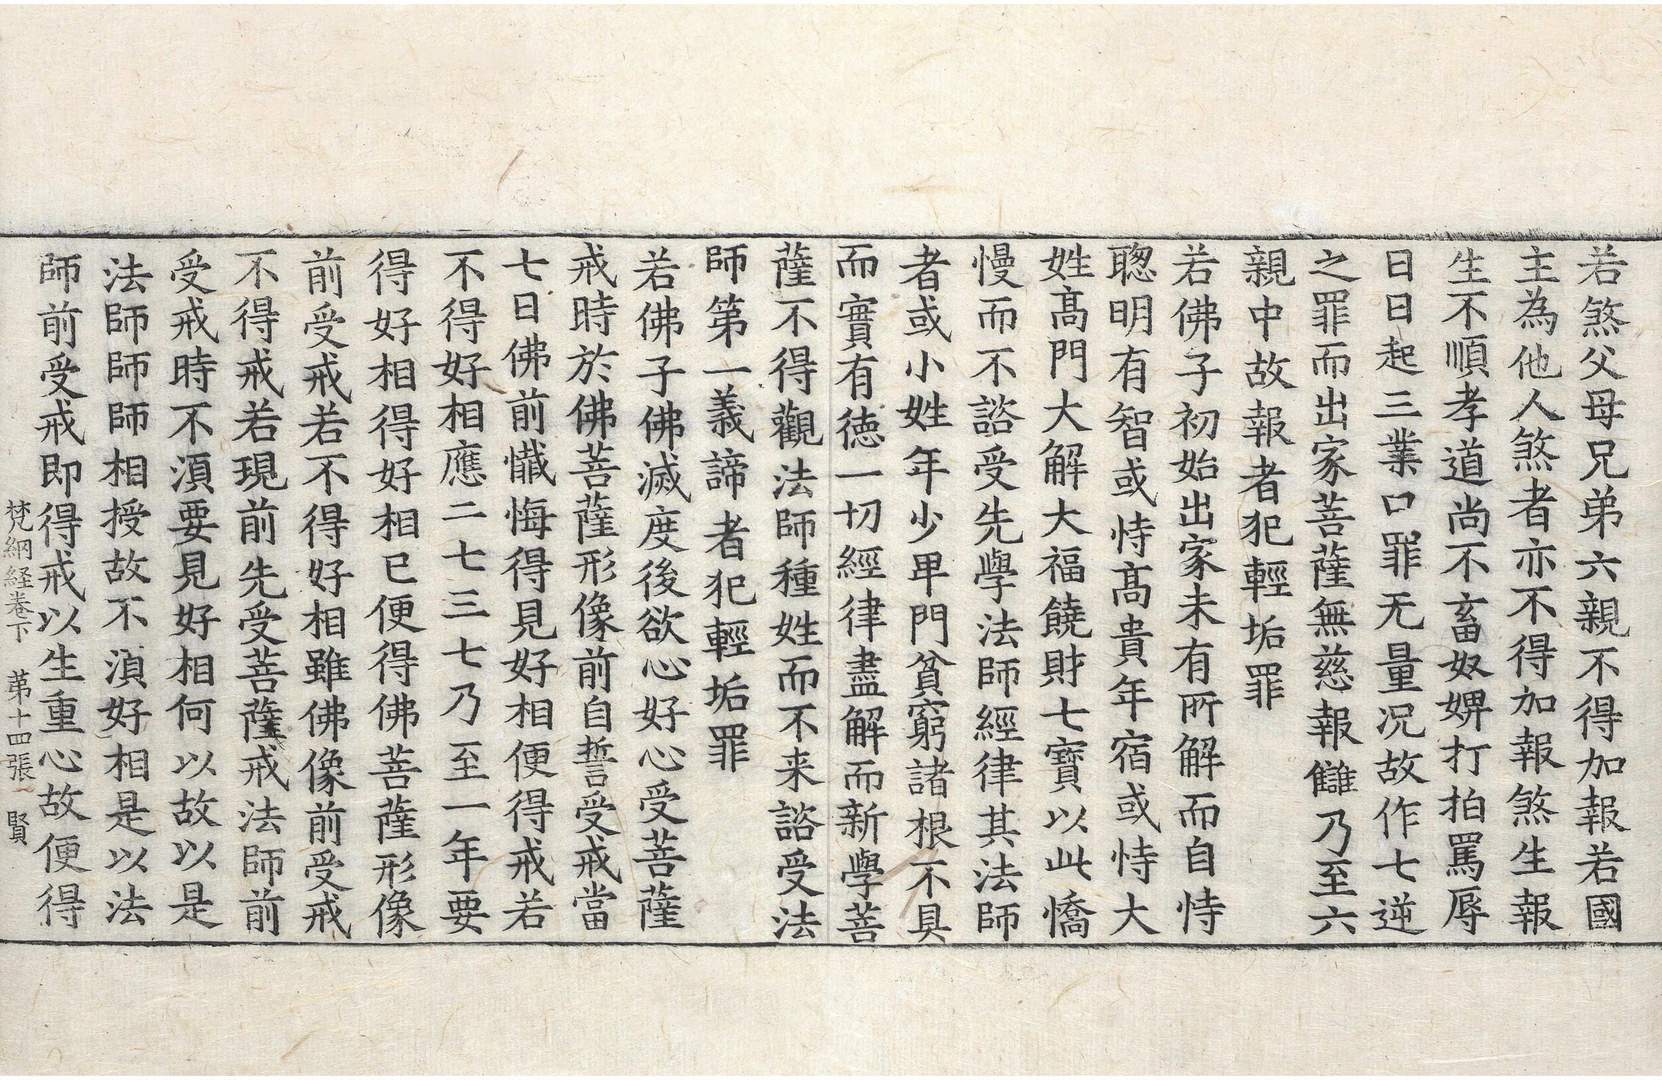 若煞父母兄弟六親不得加報若國
主為他人煞者亦不得加報煞生報
生不順孝道尚不畜奴婢打拍罵辱
日日起三業口罪无量况故作七逆
之罪而出家菩薩無慈報讎乃至六
親中故報者犯輕垢罪
若佛子初始出家未有所解而自恃
聰明有智或恃髙貴年宿或恃大
姓髙門大解大福饒財七寶以此憍
慢而不諮受先學法師經律其法師
者或小姓年少卑門貧窮諸根不具
而實有徳一切經律盡解而新學菩
薩不得觀法師種姓而不来諮受法
師第一義諦者犯輕垢罪
若佛子佛滅度後欲心好心受菩薩
戒時於佛菩薩形像前自誓受戒當
七日佛前懺悔得見好相便得戒若
不得好相應二七三七乃至一年要
得好相得好相已便得佛菩薩形像
前受戒若不得好相雖佛像前受戒
不得戒若現前先受菩薩戒法師前
受戒時不湏要見好相何以故以是
法師師師相授故不湏好相是以法
師前受戒即得戒以生重心故便得
梵網経卷下 苐十四張 賢